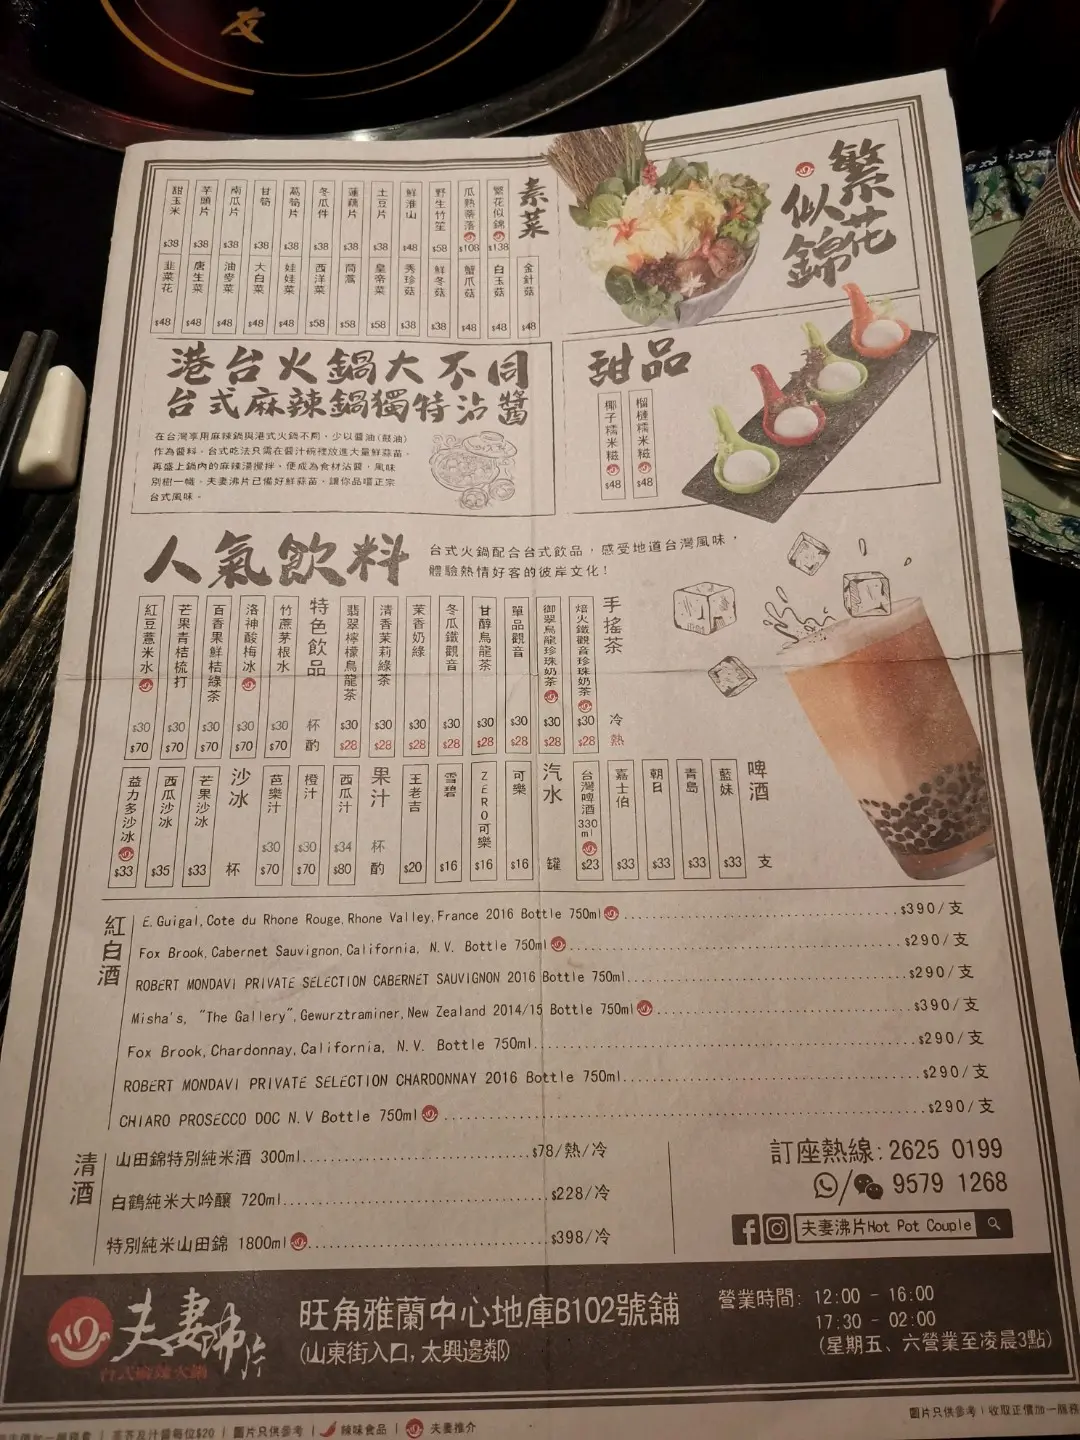 友
繁花
似錦
素菜
繁花似錦 $138
瓜熟蒂落 $108
野生竹笙 $58
鮮淮山 $48
土豆片 $38
蓮藕片 $38
冬瓜件 $38
萵筍片 $38
甘筍 $38
南瓜片 $38
芋頭片 $38
甜玉米 $38
金針菇 $48
白玉菇 $48
蟹爪菇 $48
鮮冬菇 $38
秀珍菇 $38
皇帝菜 $58
茼蒿 $58
西洋菜 $58
娃娃菜 $48
大白菜 $48
油麥菜 $48
唐生菜 $48
韭菜花 $48
港台火鍋大不同
台式麻辣鍋獨特沾醬
在台灣享用麻辣鍋與港式火鍋不同，少以醬油(豉油)
作為醬料，台式吃法只需在醬汁碗裡放進大量鮮蒜苗，
再盛上鍋內的麻辣湯攪拌，便成為食材沾醬，風味
別樹一幟，夫妻沸片已備好鮮蒜苗，讓你品嚐正宗
台式風味。
甜品
榴槤糯米糍 $48
椰子糯米糍 $48
人氣飲料
台式火鍋配合台式飲品，感受地道台灣風味，
體驗熱情好客的彼岸文化！
手搖茶 冷 熱
焙火鐵觀音珍珠奶茶 $30 $28
御翠烏龍珍珠奶茶 $30 $28
單品觀音 $30 $28
甘醇烏龍茶 $30 $28
冬瓜鐵觀音 $30 $28
茉香奶綠 $30 $28
清香茉莉綠茶 $30 $28
翡翠檸檬烏龍茶 $30 $28
特色飲品 杯 酌
竹蔗茅根水 $30 $70
洛神酸梅冰 $30 $70
百香果鮮桔綠茶 $30 $70
芒果青桔梳打 $30 $70
紅豆薏米水 $30 $70
啤酒 支
藍妹 $33
青島 $33
朝日 $33
嘉士伯 $33
台灣啤酒 330ml $23
汽水 罐
可樂 $16
ZERO可樂 $16
雪碧 $16
王老吉 $20
果汁 杯 酌
西瓜汁 $34 $80
橙汁 $30 $70
芭樂汁 $30 $70
沙冰 杯
芒果沙冰 $33
西瓜沙冰 $35
益力多沙冰 $33
紅白酒
E.Guigal,Cote du Rhone Rouge,Rhone Valley,France 2016 Bottle 750ml $390/支
Fox Brook,Cabernet Sauvignon,California, N.V. Bottle 750ml $290/支
ROBERT MONDAVI PRIVATE SELECTION CABERNET SAUVIGNON 2016 Bottle 750ml $290/支
Misha's, "The Gallery",Gewurztraminer,New Zealand 2014/15 Bottle 750ml $390/支
Fox Brook,Chardonnay,California, N.V. Bottle 750ml $290/支
ROBERT MONDAVI PRIVATE SELECTION CHARDONNAY 2016 Bottle 750ml $290/支
CHIARO PROSECCO DOC N.V Bottle 750ml $290/支
清酒
山田錦特別純米酒 300ml $78/熱/冷
白鶴純米大吟釀 720ml $228/冷
特別純米山田錦 1800ml $398/冷
訂座熱線: 2625 0199
9579 1268
夫妻沸片Hot Pot Couple
夫妻沸片
台式麻辣火鍋
旺角雅蘭中心地庫B102號舖
(山東街入口, 太興邊鄰)
營業時間: 12:00 - 16:00
17:30 - 02:00
(星期五、六營業至凌晨3點)
茶芥及汁醬每位$20 | 圖片只供參考 | 辣味食品 | 夫妻推介
圖片只供參考 | 收取正價加一服務